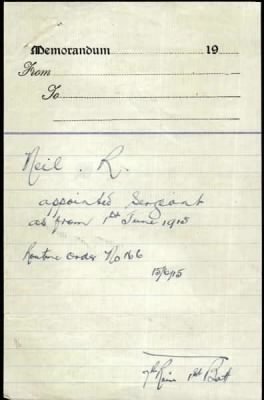 Memorandum 19
From
To
Neil . R.
appointed Sergeant
as from 1st June 1915
Routine Order No 166
15/6/15
1st Batt